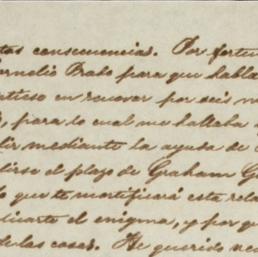 tas consecuencias. Por fortu
Cornelio Prado para que habla
en renovar por seis m
, para lo cual me hallaba
lir mediante la ayuda de
dirse el plazo de Graham G
lo que te mortificará esta rela
el enigma, y por q
de las cosas. He querido